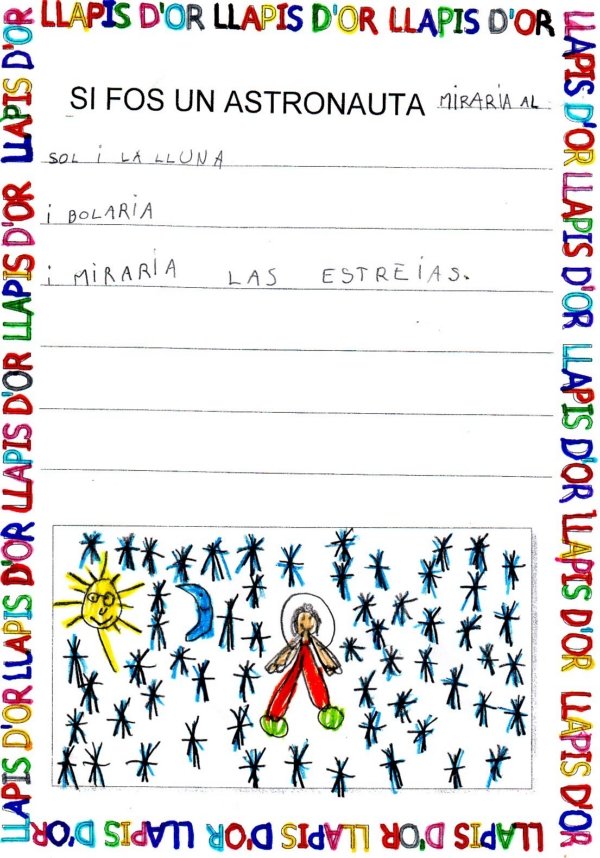 LLAPIS D'OR LLAPIS D'OR LLAPIS D'OR
SI FOS UN ASTRONAUTA MIRARIA AL
SOL I LA LLUNA
I BOLARIA
I MIRARIA LAS ESTREIAS.
LLAPIS D'OR LLAPIS D'OR LLAPIS D'OR LLAPIS D'OR LLAPIS D'OR
LLAPIS D'OR LLAPIS D'OR LLAPIS D'OR LLAPIS D'OR LLAPIS D'OR
LLAPIS D'OR LLAPIS D'OR LLAPIS D'OR